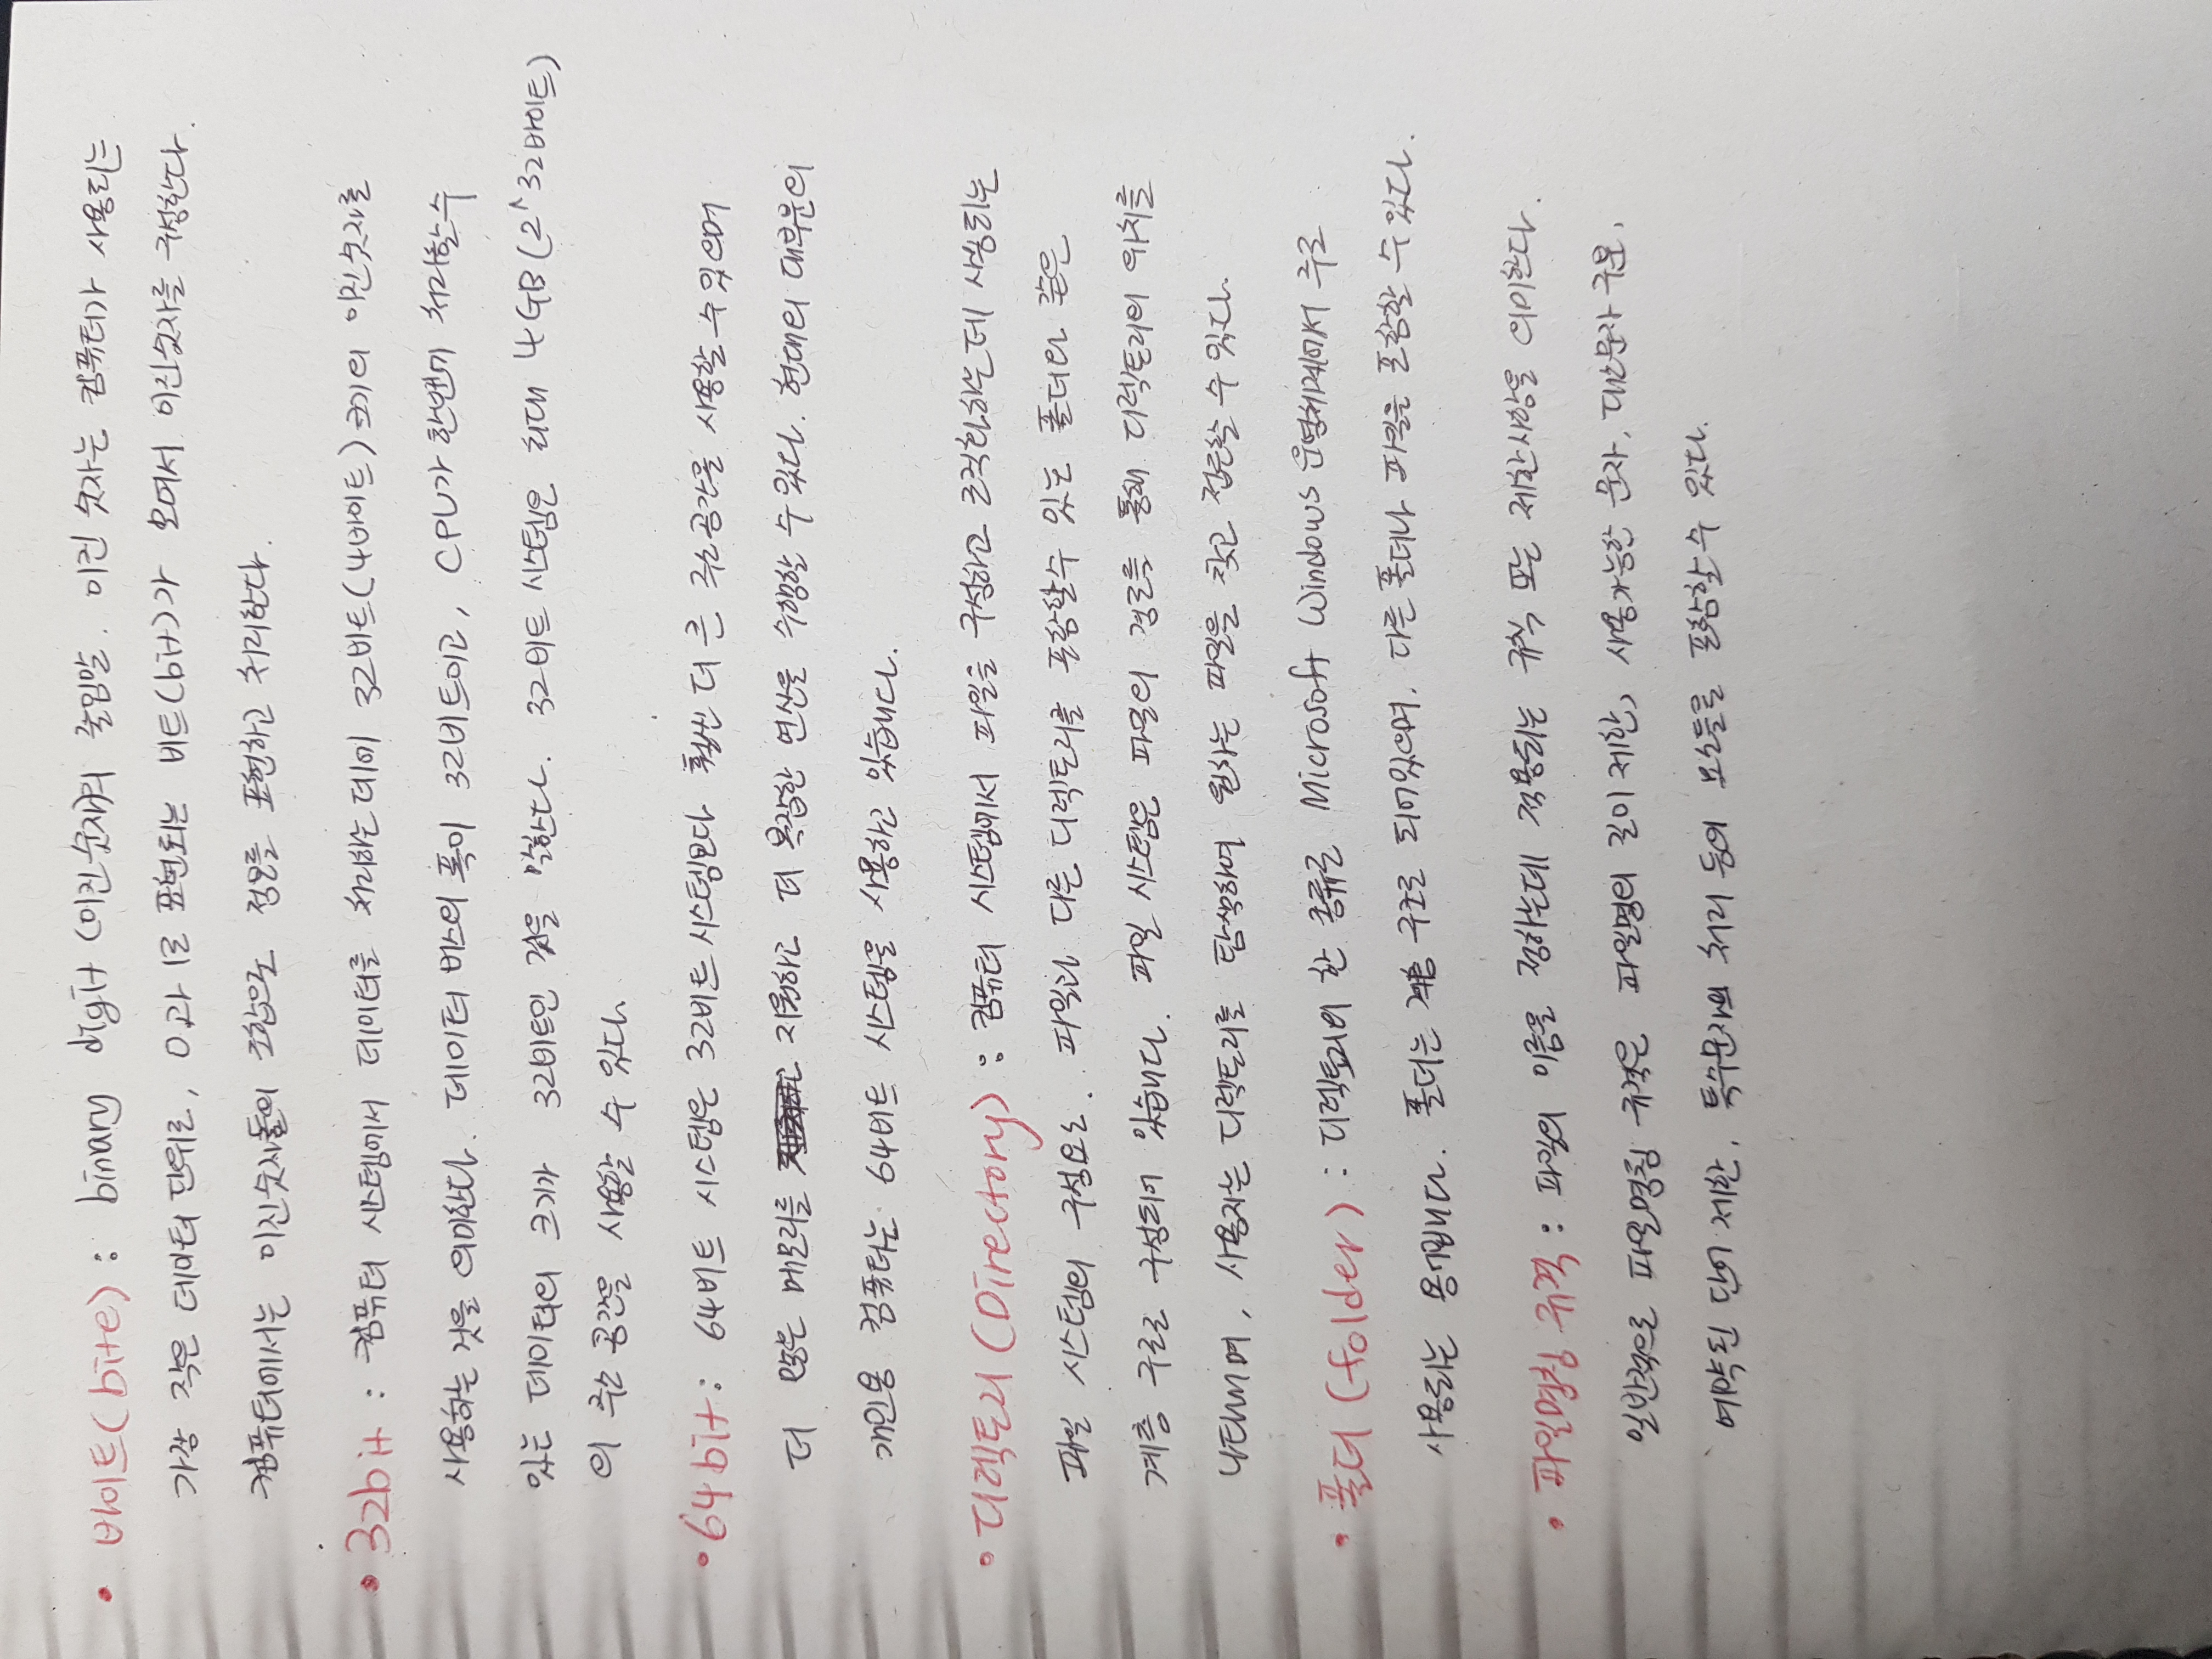 • 바이트(bite) : binary digit (이진숫자)의 줄임말. 이진 숫자는 컴퓨터가 사용되는
가장 작은 데이터 단위로, 0과 1로 표현되는 비트(bit)가 모여서 이진숫자를 구성한다.
컴퓨터에서는 이진숫자들의 조합으로 정보를 표현하고 처리한다.
• 32bit : 컴퓨터 시스템에서 데이터를 처리하는데이 32비트(4바이트)크기의 이진 숫자를
사용하는 것을 의미한다. 데이터 버스의 폭이 32비트이고, CPU가 한번에 처리할수
있는 데이터의 크기가 32비트인 것을 말한다. 32비트 시스템은 최대 4GB(2^32바이트)
의 주소 공간을 사용할 수 있다.
• 64bit : 64비트 시스템은 32비트 시스템보다 훨씬 더 큰 주소공간을 사용할 수 있으며
더 많은 메모리를 지원하고 더 복잡한 연산을 수행할 수 있다. 현대의 대부분의
개인용 컴퓨터는 64비트 시스템을 사용하고 있습니다.
• 디렉토리 (Directory) : 컴퓨터 시스템에서 파일을 구성하고 조직화하는데 사용되는
파일 시스템의 구성요소. 파일과 다른 디렉토리를 포함할수 있는 폴더와 같은
계층 구조로 구성되어 있습니다. 파일 시스템은 파일의 경로를 통해 디렉토리의 위치를
나타내며, 사용자는 디렉토리를 탐색하여 원하는 파일을 찾고 접근할 수 있다.
• 폴더 (folder) : 디렉토리의 한 종류로 Microsoft Windows 운영체제에서 주로
사용되는 용어입니다. 폴더는 계층 구조로 되어있으며, 다른 폴더나 파일을 포함할 수 있다.
• 파일명칭 규칙 : 파일의 이름을 정하는데 적용되는 규칙 또는 제한사항을 의미한다.
일반적으로 파일명칭 규칙은 파일명의 길이 제한, 사용가능한 문자, 대소문자 구분,
예약된 단어 제한, 특수문자의 처리 등의 요소들을 포함할수 있다.